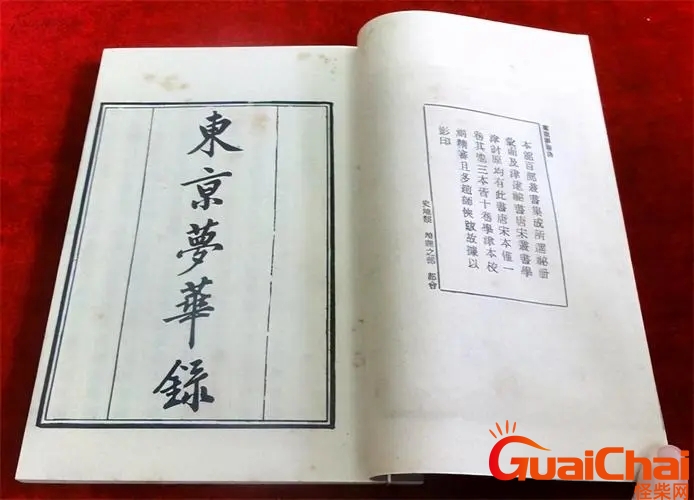 東京夢華錄
本館百部叢書集成所選祕冊
彙函及津逮祕書唐宋叢書學
津討原均有此書唐宋本僅一
卷其他三本皆十卷學津本校
刻精審且多趙師俠跋故據以
影印
史地類 地理之部 都會
GuaiChai
怪柴网